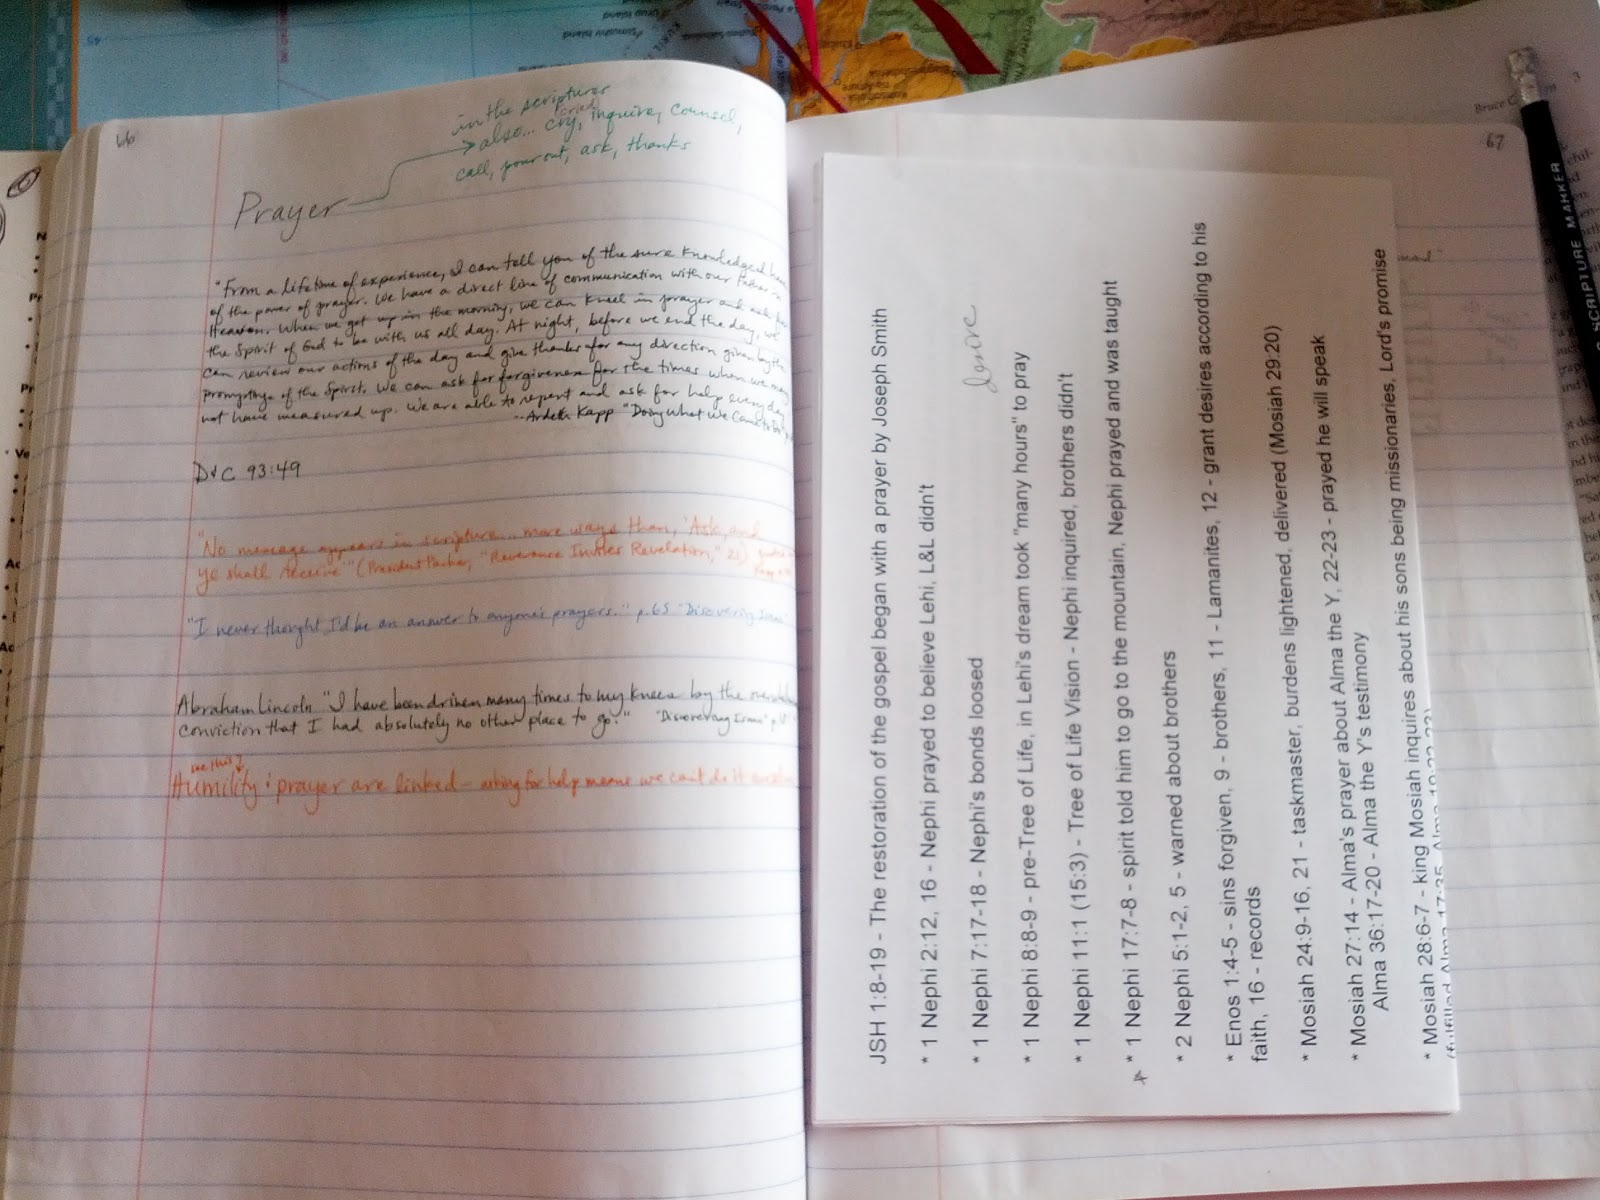 66
in the scriptures
also... cry, inquire, counsel,
cried
call, pour out, ask, thanks
Prayer
"From a lifetime of experience, I can tell you of the sure knowledge I have
of the power of prayer. We have a direct line of communication with our Father in
Heaven. When we get up in the morning, we can kneel in prayer and ask for
the Spirit of God to be with us all day. At night, before we end the day, we
can review our actions of the day and give thanks for any direction given by the
promptings of the Spirit. We can ask for forgiveness for the times when we may
not have measured up. We are able to repent and ask for help every day
--Ardeth Kapp "Doing What We Came to Do"
D&C 93:49
"No message appears in scripture... more ways than, 'Ask, and
ye shall receive'" (President Packer, "Reverence Invites Revelation," 21)
"I never thought I'd be an answer to anyone's prayers." p.65 "Discovering
Abraham Lincoln "I have been driven many times to my knees by the
conviction that I had absolutely no other place to go." "Discovering
see this
Humility & prayer are linked - asking for help means we can't do it
67
JSH 1:8-19 - The restoration of the gospel began with a prayer by Joseph Smith
* 1 Nephi 2:12, 16 - Nephi prayed to believe Lehi, L&L didn't
* 1 Nephi 7:17-18 - Nephi's bonds loosed
desire
* 1 Nephi 8:8-9 - pre-Tree of Life, in Lehi's dream took "many hours" to pray
* 1 Nephi 11:1 (15:3) - Tree of Life Vision - Nephi inquired, brothers didn't
* 1 Nephi 17:7-8 - spirit told him to go to the mountain, Nephi prayed and was taught
* 2 Nephi 5:1-2, 5 - warned about brothers
* Enos 1:4-5 - sins forgiven, 9 - brothers, 11 - Lamanites, 12 - grant desires according to his
faith, 16 - records
* Mosiah 24:9-16, 21 - taskmaster, burdens lightened, delivered (Mosiah 29:20)
* Mosiah 27:14 - Alma's prayer about Alma the Y, 22-23 - prayed he will speak
Alma 36:17-20 - Alma the Y's testimony
* Mosiah 28:6-7 - king Mosiah inquires about his sons being missionaries, Lord's promise
(fulfilled Alma 17:35, Alma 19:22-23)
Bruce C.
3
SCRIPTURE MARKER